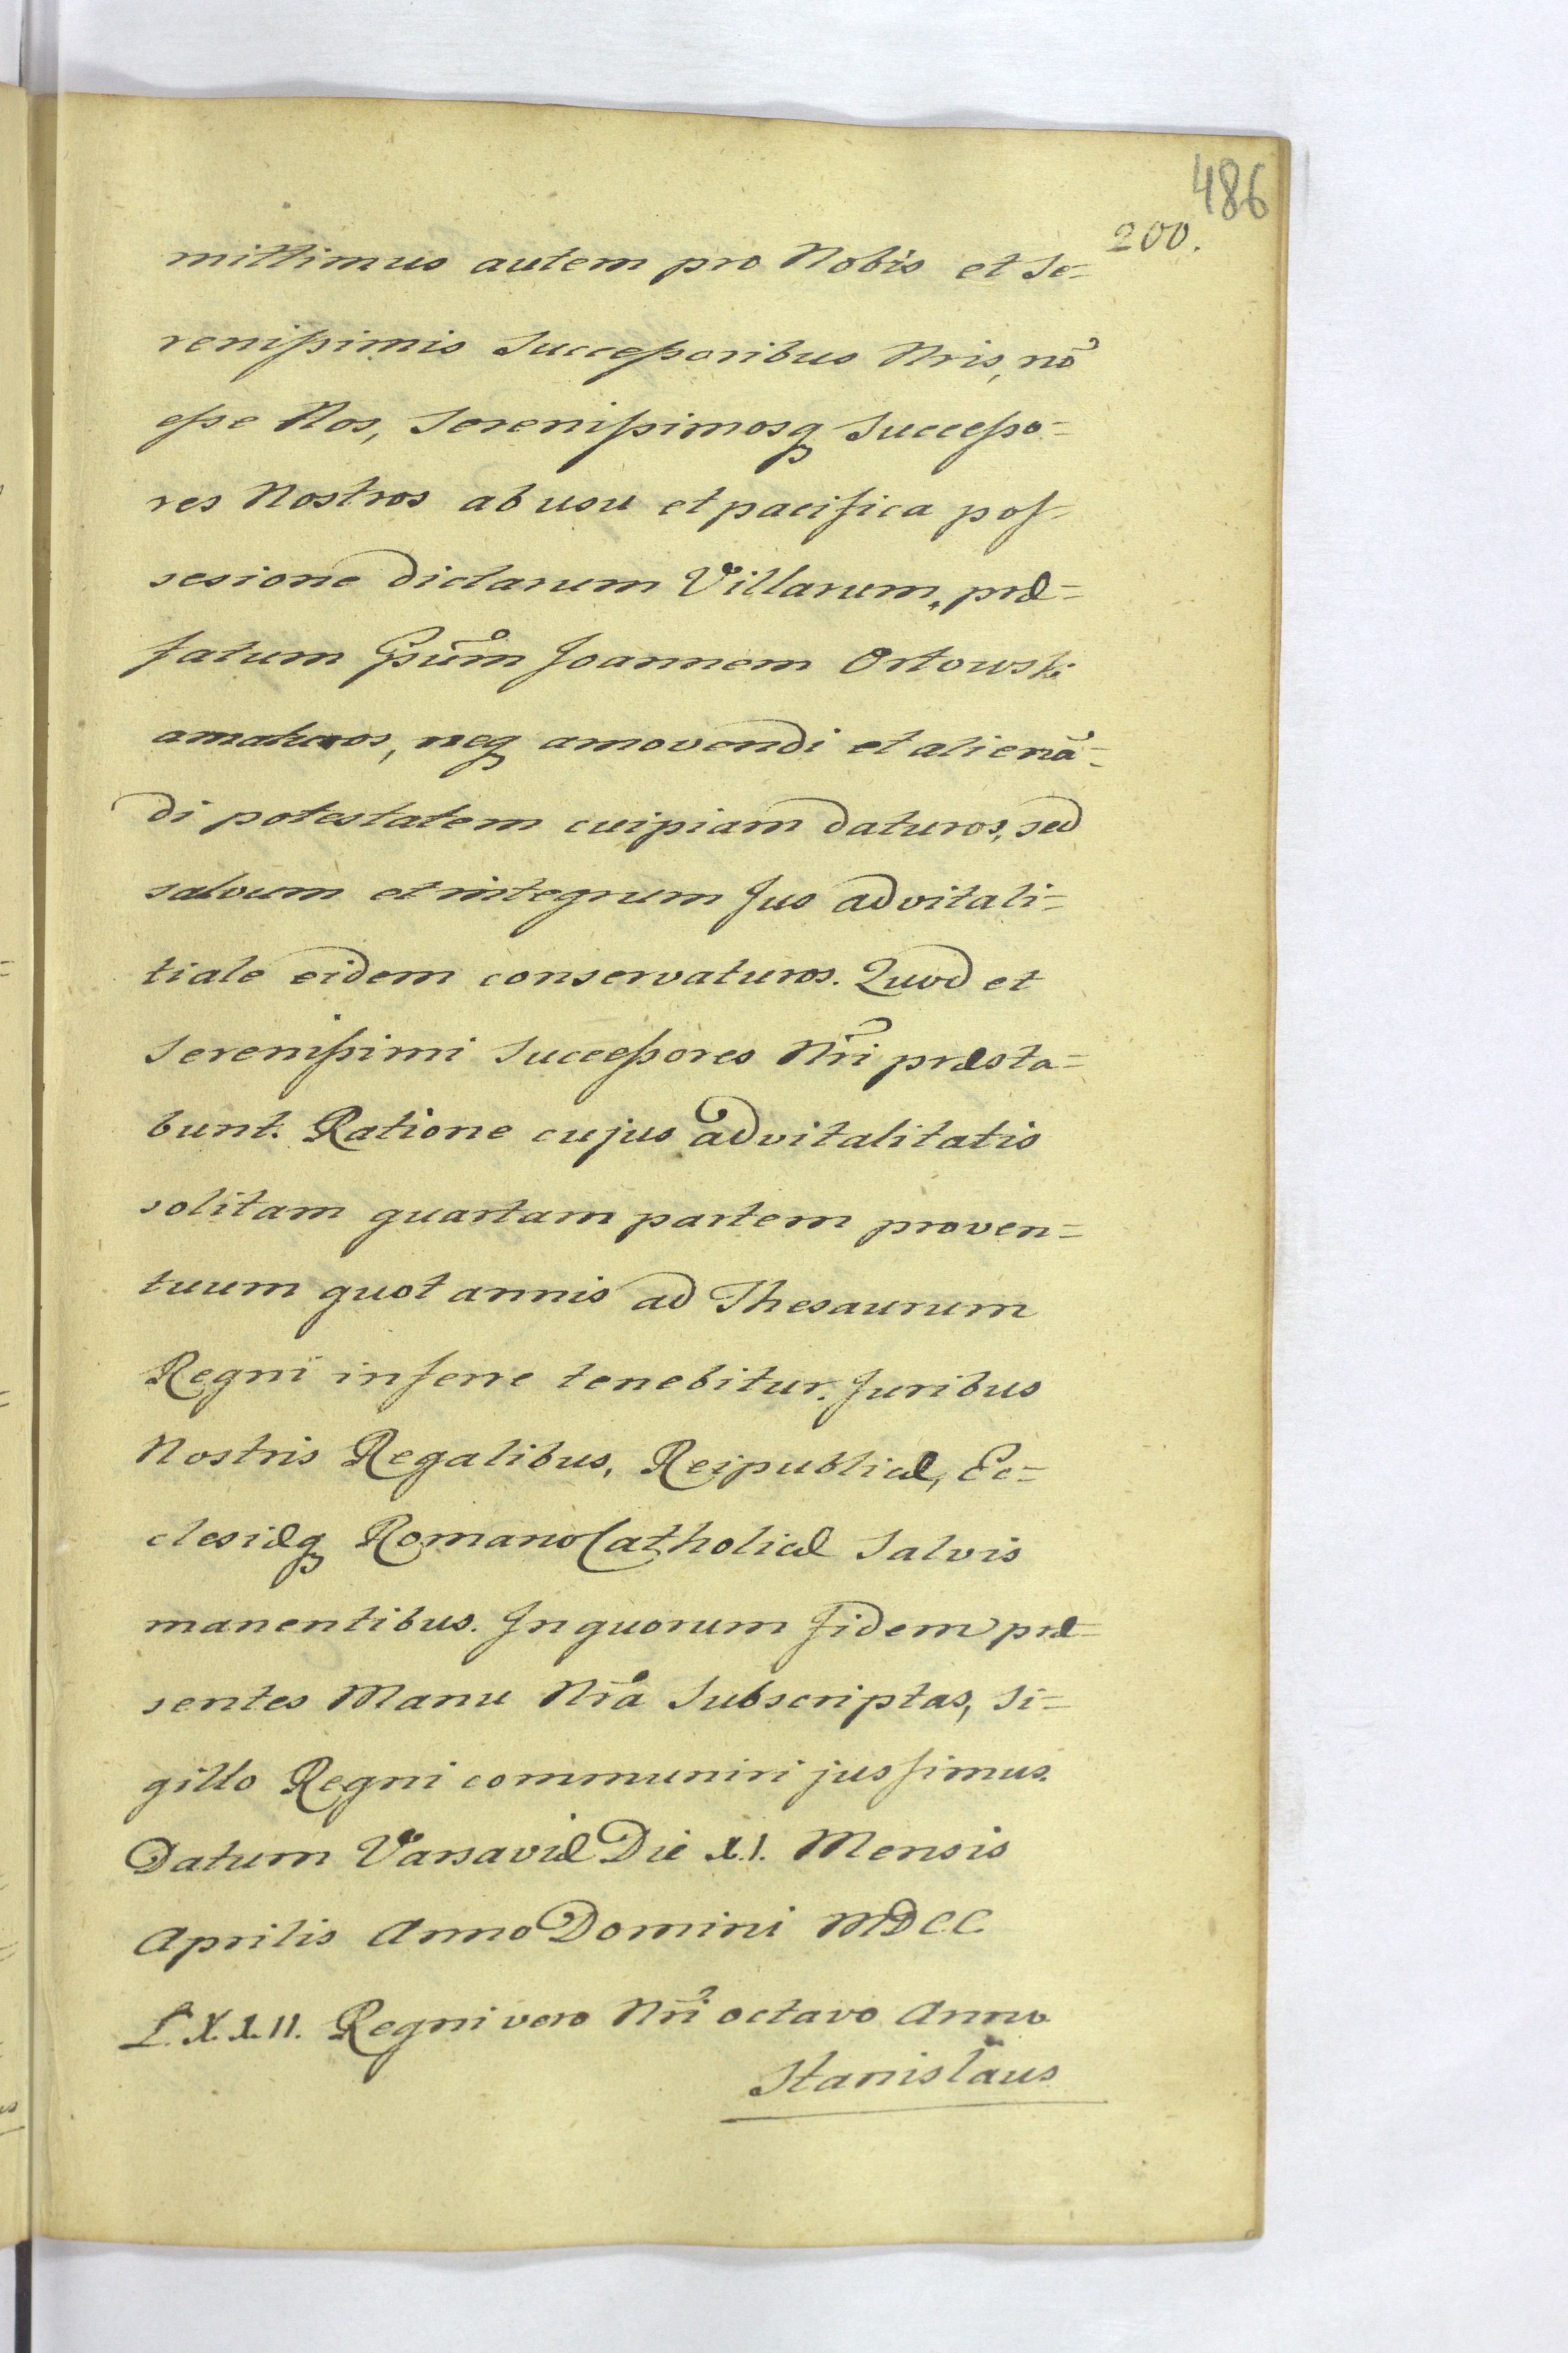 486
200.
mittimus autem pro Nobis et Se=
renißimis Succeßoribus Nris, nō
eße Nos, Serenißimosq Succeßo=
res Nostros ab usu et pacifica pos-
sesione dictarum Villarum, præ=
fatum Gsum Joannem Orłowski
amaturos, neq amovendi et alienā=
di potestatem cuipiam daturos, sed
salvum et integrum Jus advitali=
tiale eidem conservaturos. Quod et
Serenißimi Succeßores Nri præsta=
bunt. Ratione cujus advitalitatis
solitam quartam partem proven=
tuum quot annis ad Thesaurum
Regni inferre tenebitur. Juribus
Nostris Regalibus, Reipublicæ, Ec=
clesiæq Romano Catholicæ Salvis
manentibus. In quorum fidem præ=
sentes Manu Nra Subscriptas, Si=
gillo Regni communiri jussimus.
Datum Varsaviæ Die XI. Mensis
Aprilis Anno Domini MDCC
LXXII. Regni vero Nri octavo Anno
Stanisłaus